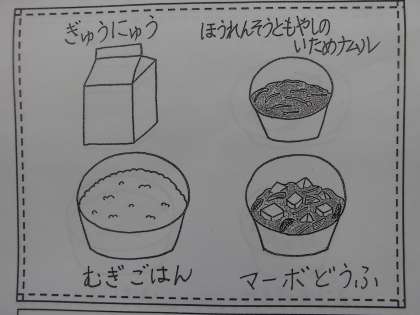 ぎゅうにゅう
ほうれんそうともやしの
いためナムル
むぎごはん
マーボどうふ